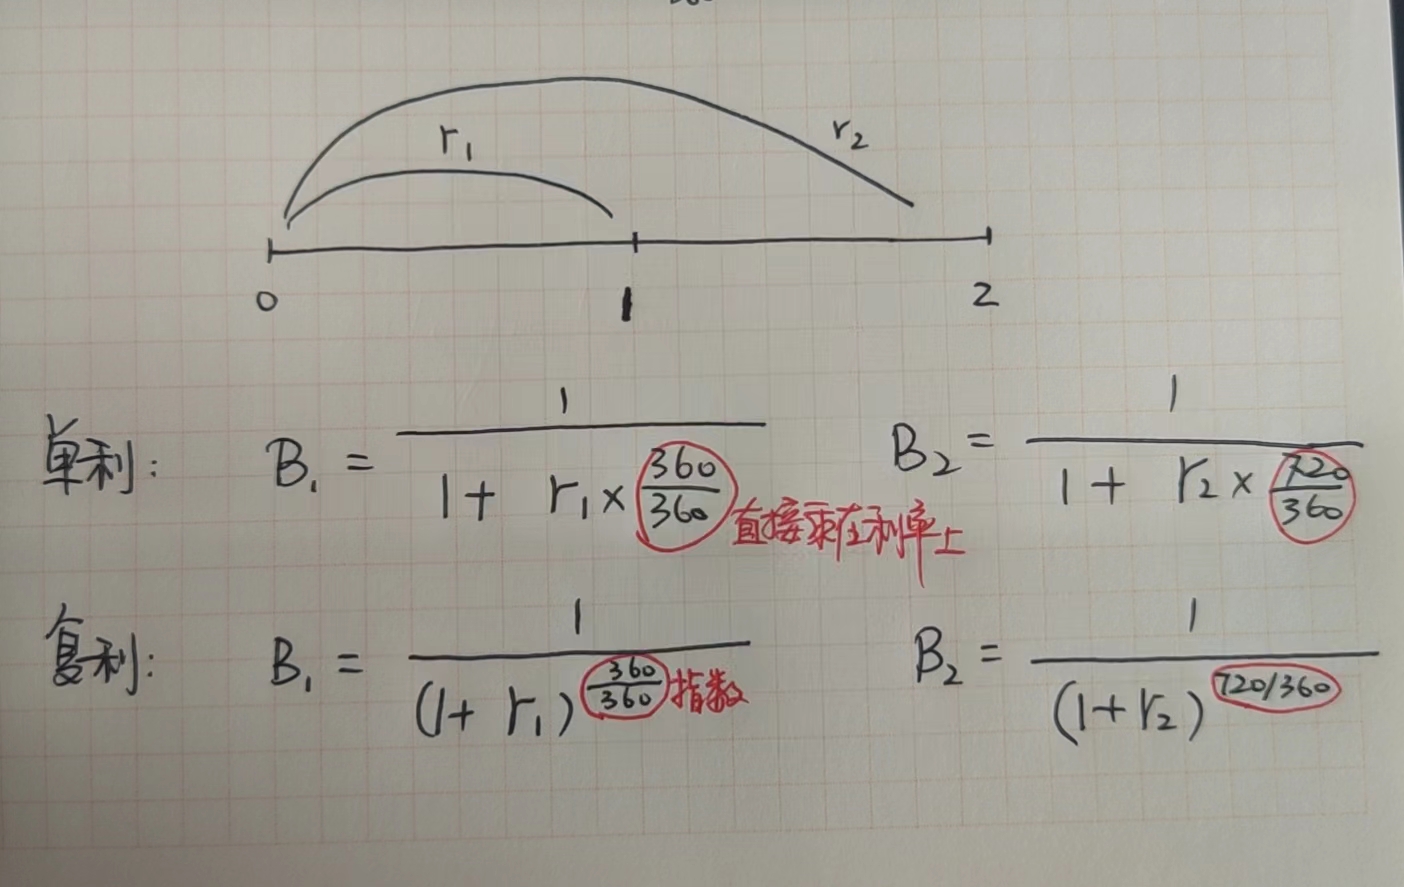 r₁
r₂
0 1 2
单利: B₁ = 1 / (1 + r₁ × 360/360) 直接乘在利率上 B₂ = 1 / (1 + r₂ × 720/360)
复利: B₁ = 1 / (1 + r₁)^(360/360) 指数 B₂ = 1 / (1 + r₂)^(720/360)